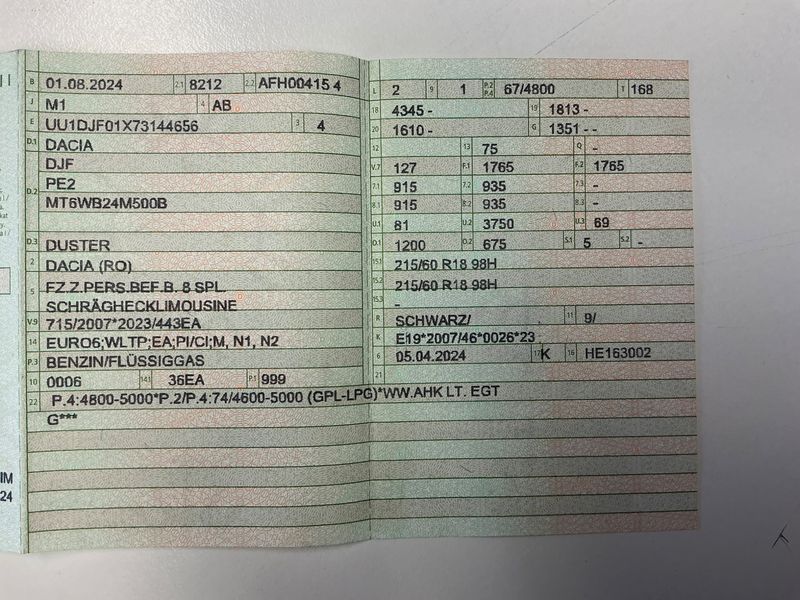 B 01.08.2024 2.1 8212 2.2 AFH00415 4
J M1 4 AB
E UU1DJF01X73144656 3 4
D.1 DACIA
DJF
D.2 PE2
MT6WB24M500B
D.3 DUSTER
2 DACIA (RO)
5 FZ.Z.PERS.BEF.B. 8 SPL.
SCHRÄGHECKLIMOUSINE
V.9 715/2007*2023/443EA
14 EURO6;WLTP;EA;PI/CI;M, N1, N2
P.3 BENZIN/FLÜSSIGGAS
10 0006 14.1 36EA P.1 999
22 P.4:4800-5000*P.2/P.4:74/4600-5000 (GPL-LPG)*WW.AHK LT. EGT
G***
L 2 9 1 P.2 P.4 67/4800 T 168
18 4345 - 19 1813 -
20 1610 - G 1351 - -
12 13 75 Q -
V.7 127 F.1 1765 F.2 1765
7.1 915 7.2 935 7.3 -
8.1 915 8.2 935 8.3 -
U.1 81 U.2 3750 U.3 69
O.1 1200 O.2 675 S.1 5 S.2 -
15.1 215/60 R18 98H
15.2 215/60 R18 98H
15.3 -
R SCHWARZ/ 11 9/
K E19*2007/46*0026*23
6 05.04.2024 17 K 16 HE163002
21
IM
24